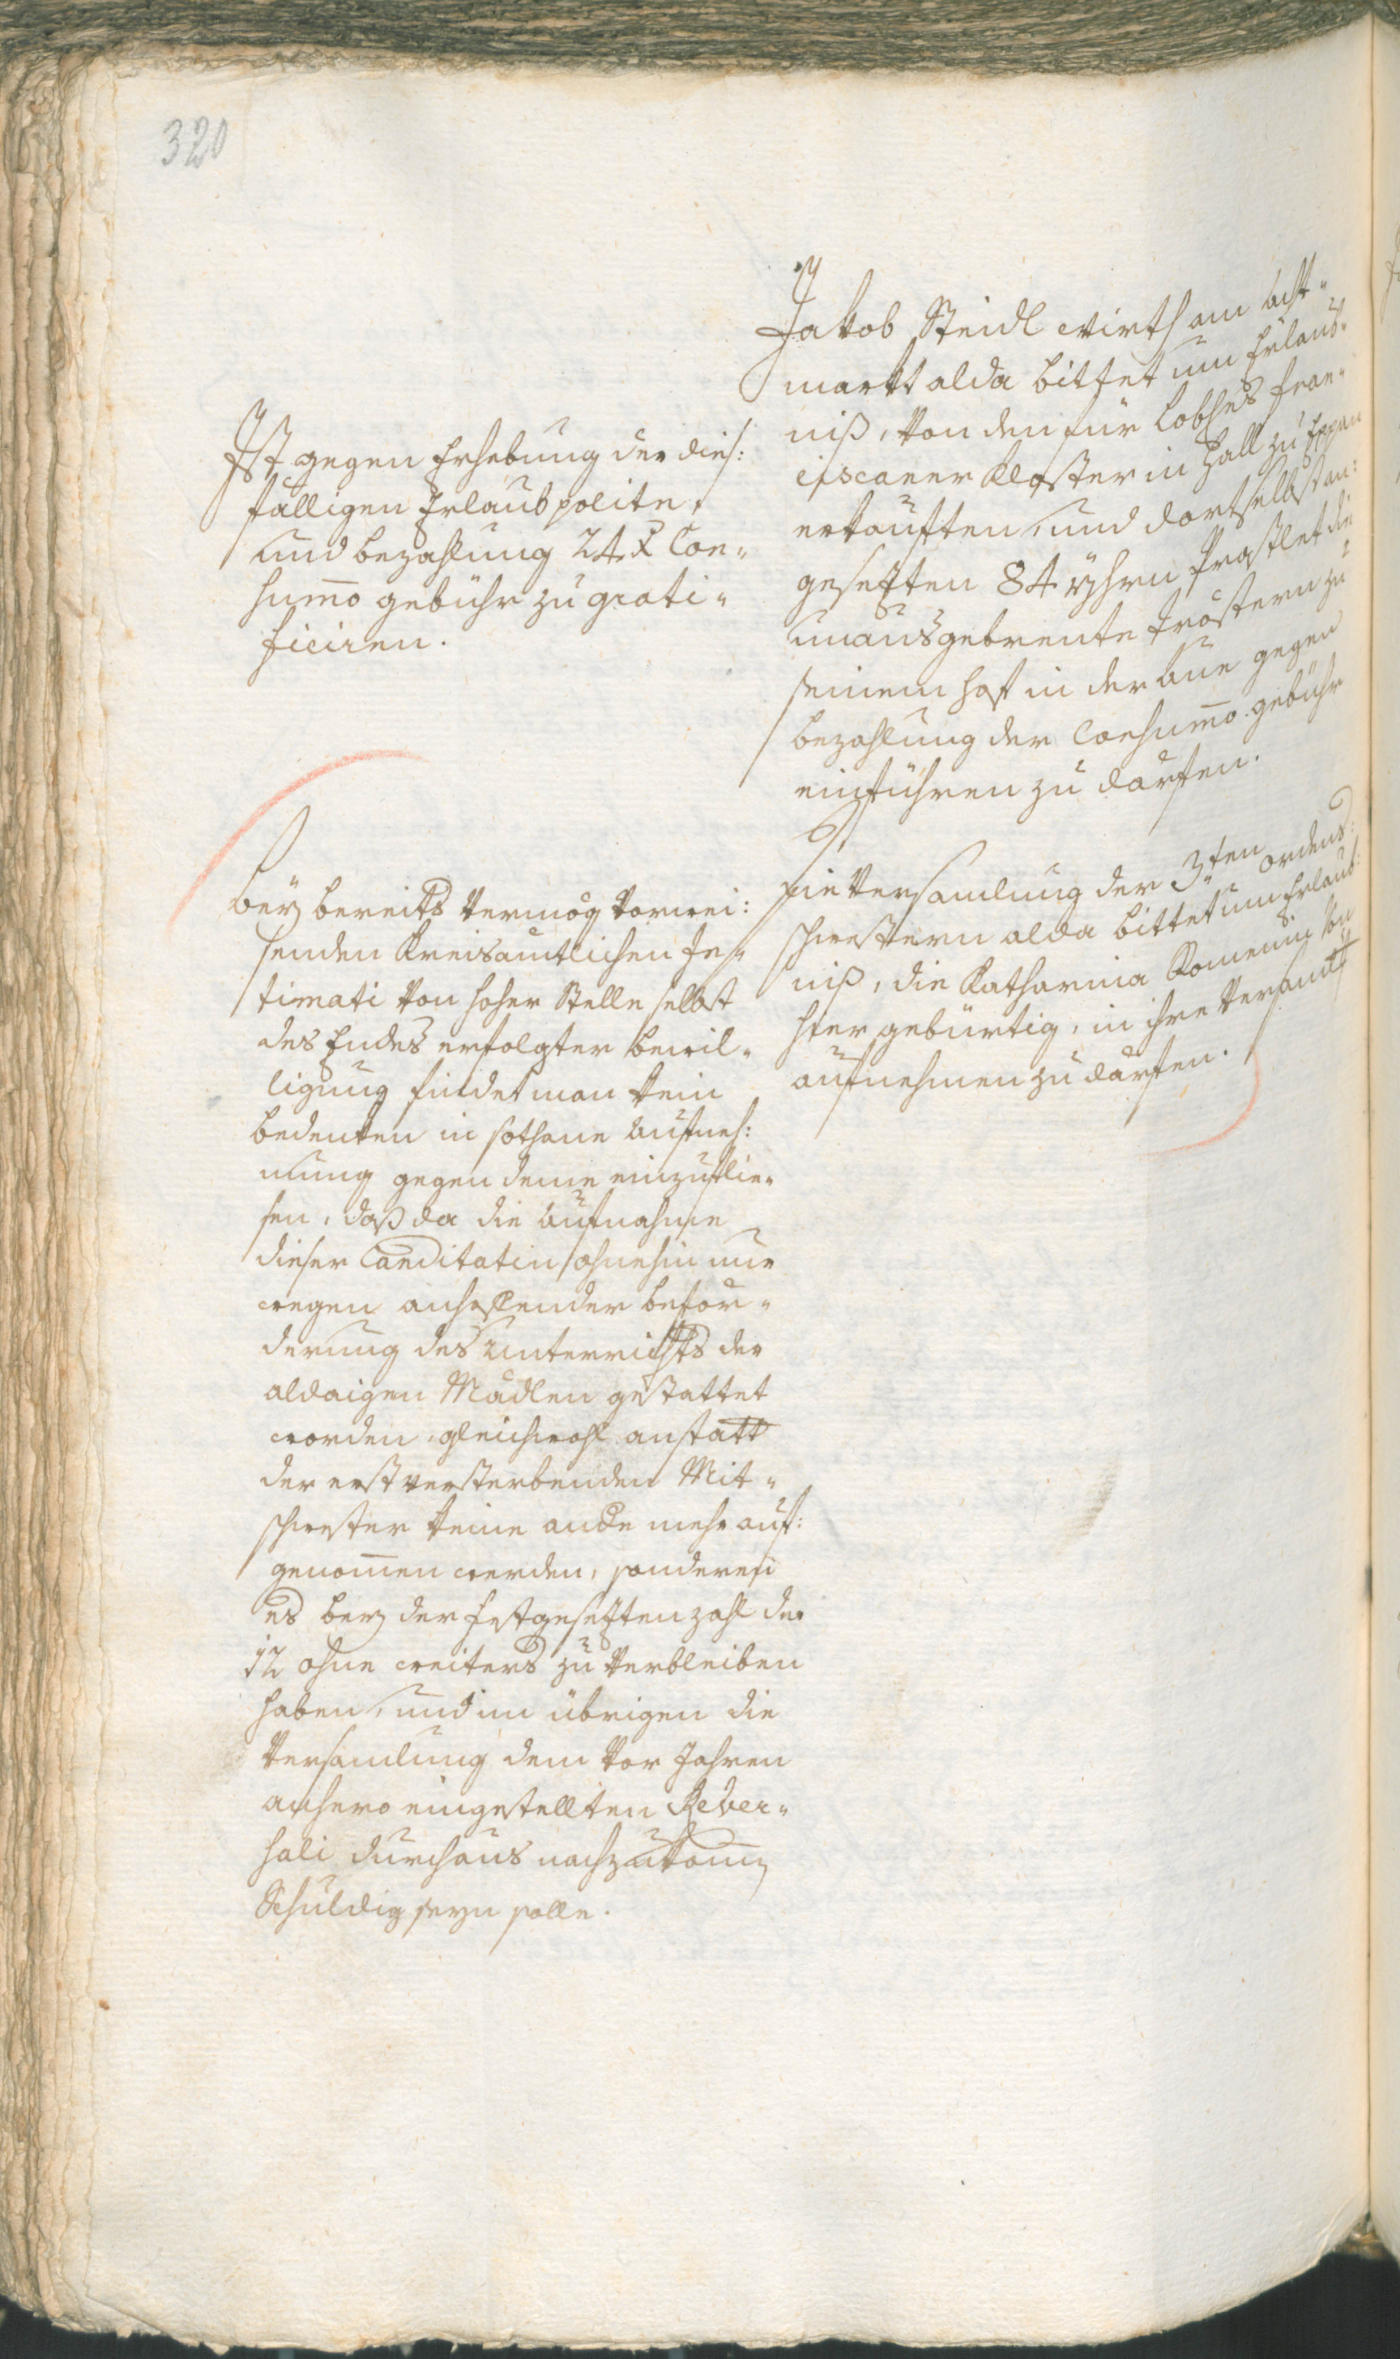 320
Jakob Steidl Wirth am Obst-
markt alda bittet um Erlaub-
niß, von den für lobhes Fran-
ciscaner Kloster in Hall zu Eppan
erkauften, und dortselbst an:
gesetzten 84 Yhrn Praschlet die
unausgebrente Tröstern zu
seinem Hof in der Aue gegen
bezahlung der Consumo gebühr
einführen zu därfen.
Ist gegen Erhebung der dies:
fälligen Erlaubpolite,
und bezahlung 24 x Con-
sumo gebühr zu grati-
ficiren.
Die Versamlung der 3ten ordens:
schwestern alda bittet um Erlaub:
niß, die Katharina Romenin von
hier gebürtig, in ihre Versamlg
aufnehmen zu därfen.
Beÿ bereits vermög vorwei:
senden Kreisamtlichen In-
timati von hoher Stelle selbst
des Endes erfolgter bewil-
ligung findet man kein
bedenken in sothane Aufneh:
mung gegen deme einzuflie-
sen, daß da die Aufnahme
dieser Canditatin ohnehin nur
wegen anhoffender beför-
derung des Unterrichts der
aldaigen Mädlen gestattet
worden, gleichwohl anstatt
der erst versterbenden Mit-
schwester keine ande mehr auf:
genomen werden, sonderen
es beÿ der festgesetzten zahl der
12 ohne weiters zu verbleiben
haben, und im übrigen die
Versamlung dem vor Jahren
anhero eingestellten Rever-
sali durchaus nachzukomen
Schuldig seyn solle.